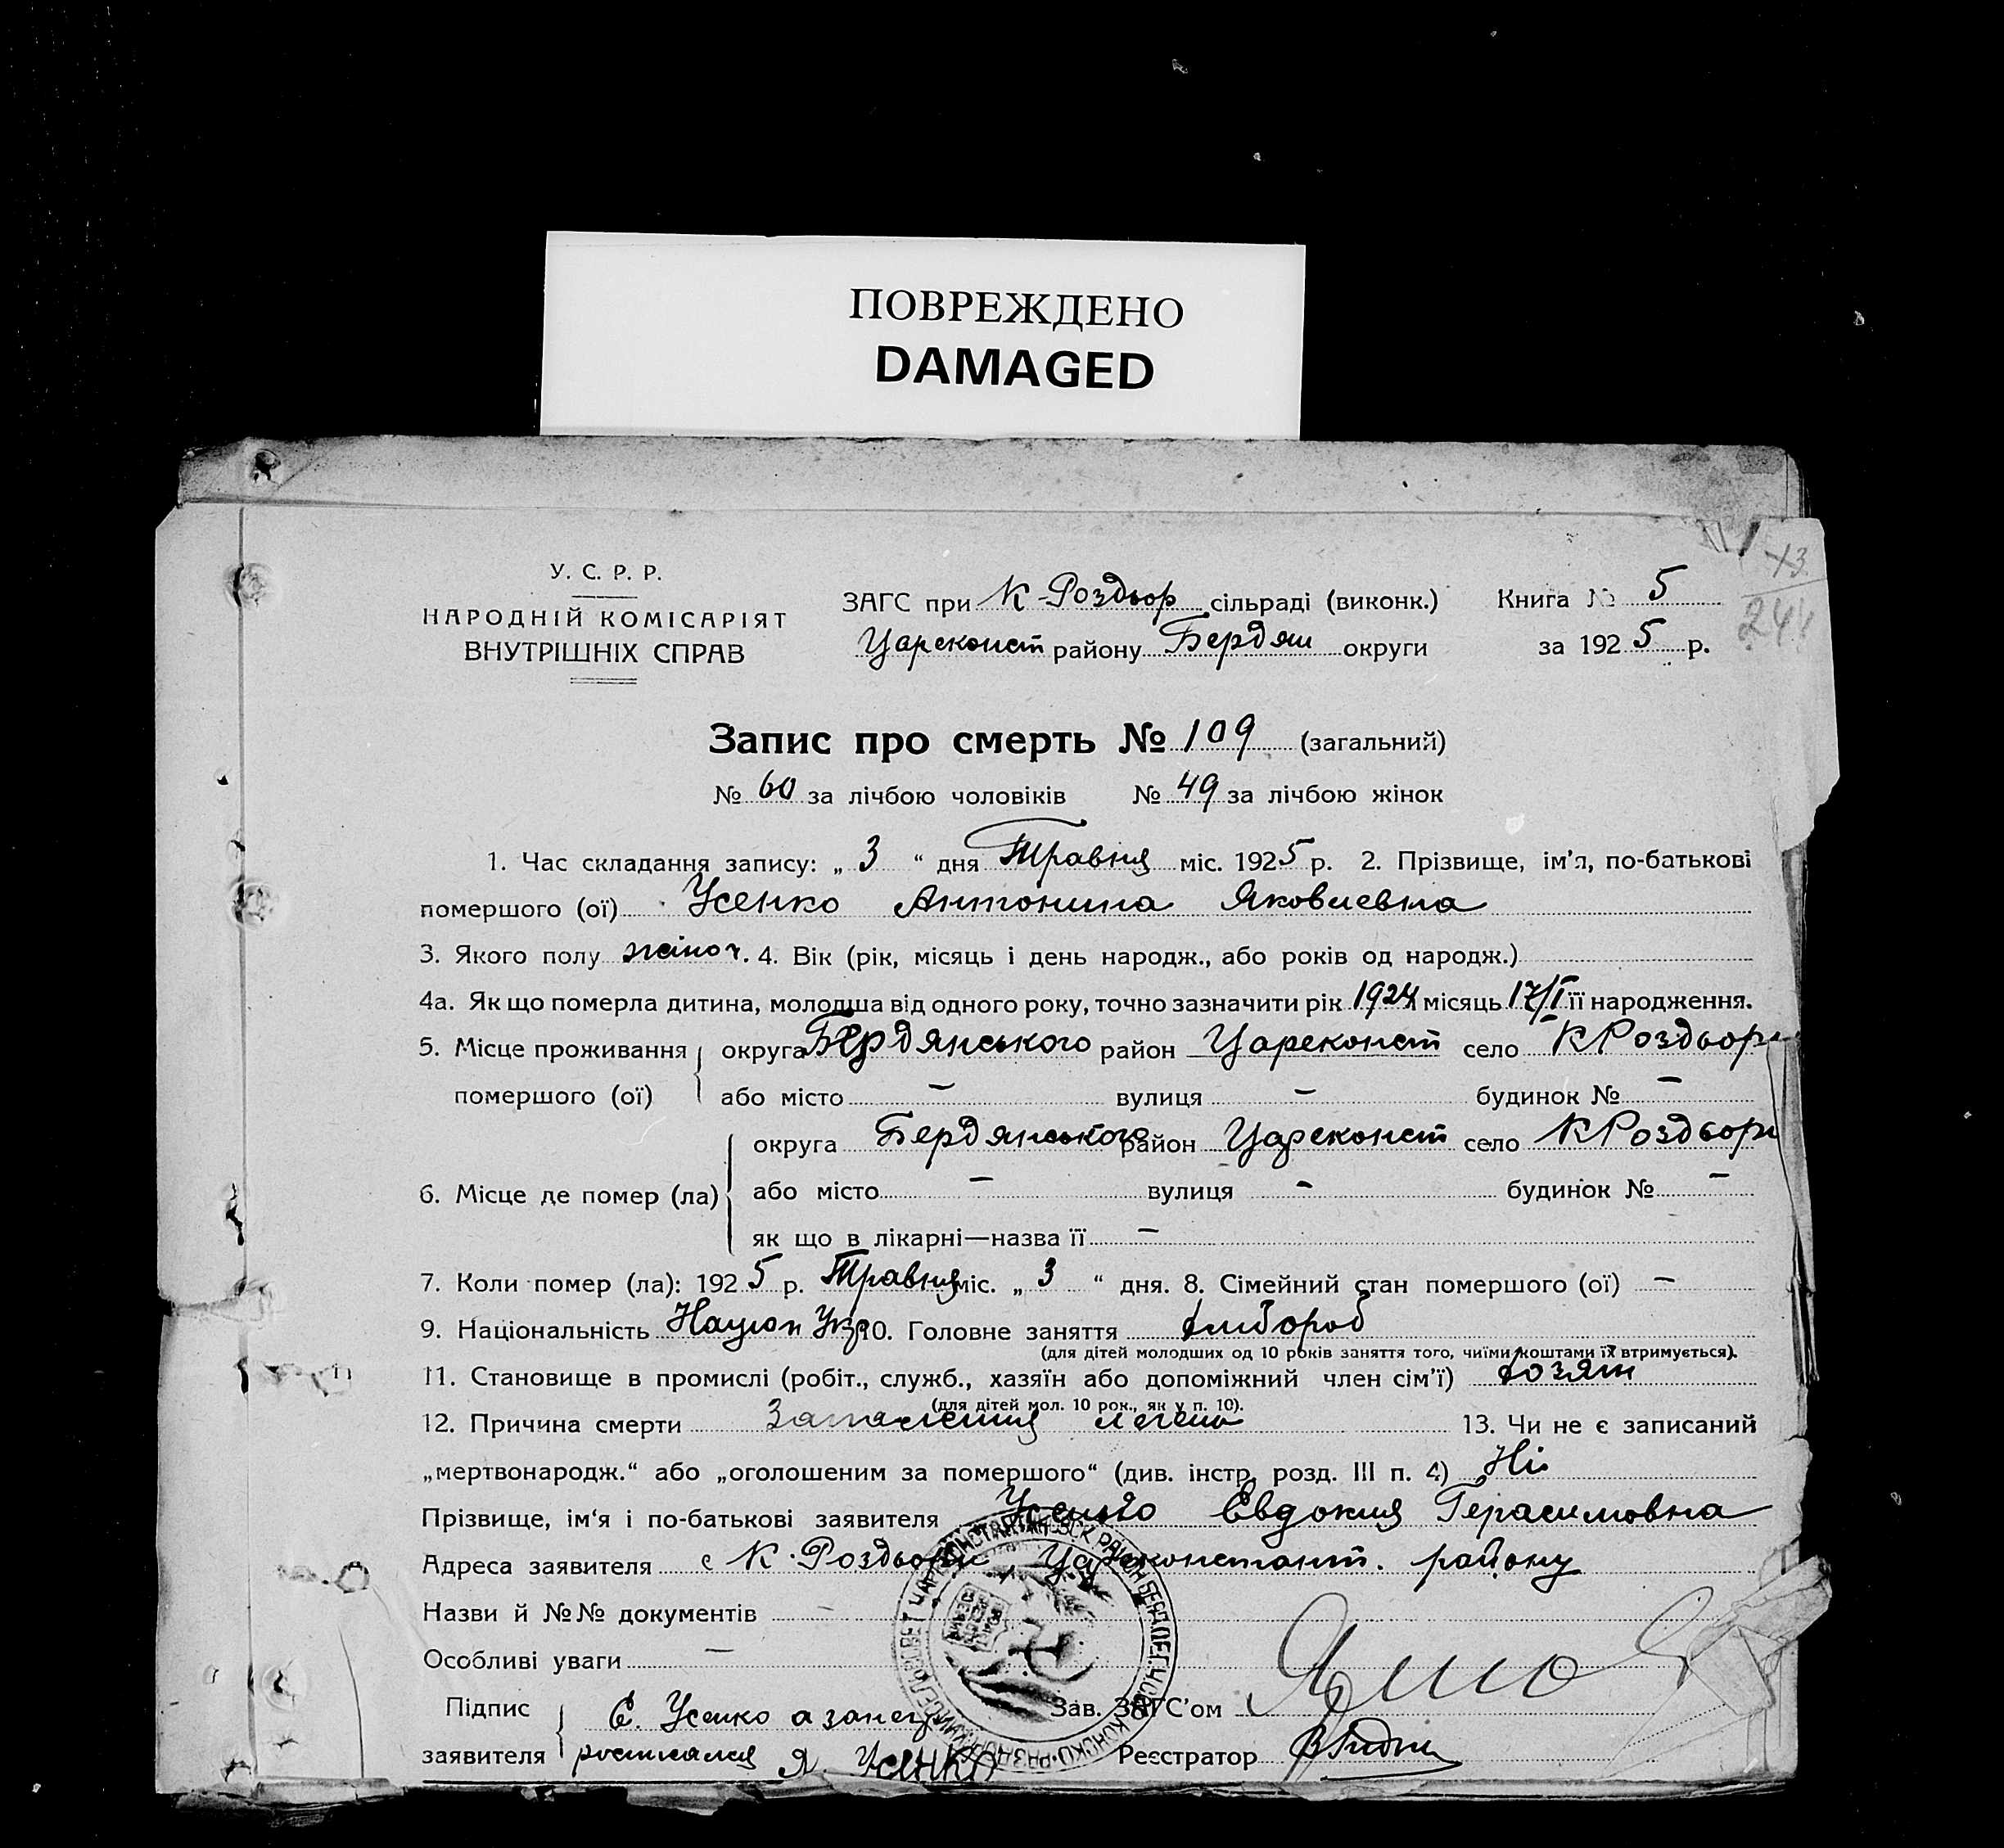 ПОВРЕЖДЕНО
DAMAGED
13
241
У. С. Р. Р.
НАРОДНІЙ КОМІСАРІЯТ
ВНУТРІШНІХ СПРАВ
ЗАГС при К-Роздьор сільраді (виконк.) Книга № 5
Цареконст району Бердян округи за 1925 р.
Запис про смерть № 109 (загальний)
№ 60 за лічбою чоловіків № 49 за лічбою жінок
1. Час складання запису: „ 3 “ дня Травня міс. 1925 р. 2. Прізвище, ім’я, по-батькові
помершого (ої) Усенко Антонина Яковлевна
3. Якого полу жіноч. 4. Вік (рік, місяць і день народж., або років од народж.)
4а. Як що померла дитина, молодша від одного року, точно зазначити рік 1924 місяць 17/I її народження.
5. Місце проживання округа Бердянського район Цареконст село К Роздьори
помершого (ої) або місто — вулиця — будинок № —
округа Бердянського район Цареконст село К Роздьори
6. Місце де помер (ла) або місто — вулиця — будинок № —
як що в лікарні—назва її —
7. Коли помер (ла): 1925 р. Травня міс. „ 3 “ дня. 8. Сімейний стан помершого (ої) —
9. Національність Націон Укр 10. Головне заняття хлібороб
(для дітей молодших од 10 років заняття того, чиїми коштами їх втримується).
11. Становище в промислі (робіт., служб., хазяїн або допоміжний член сім’ї) хозяін
(для дітей мол. 10 рок., як у п. 10).
12. Причина смерти Запаления легень 13. Чи не є записаний
„мертвонародж.“ або „оголошеним за помершого“ (див. інстр. розд. III п. 4) Ні
Прізвище, ім’я і по-батькові заявителя Усенко Евдокия Герасимовна
Адреса заявителя с К. Роздьори, Цареконстант. району
Назви й №№ документів —
Особливі уваги —
Підпис Е. Усенко а за неї Зав. ЗАГС’ом
заявителя росписался Я Усенко Реєстратор